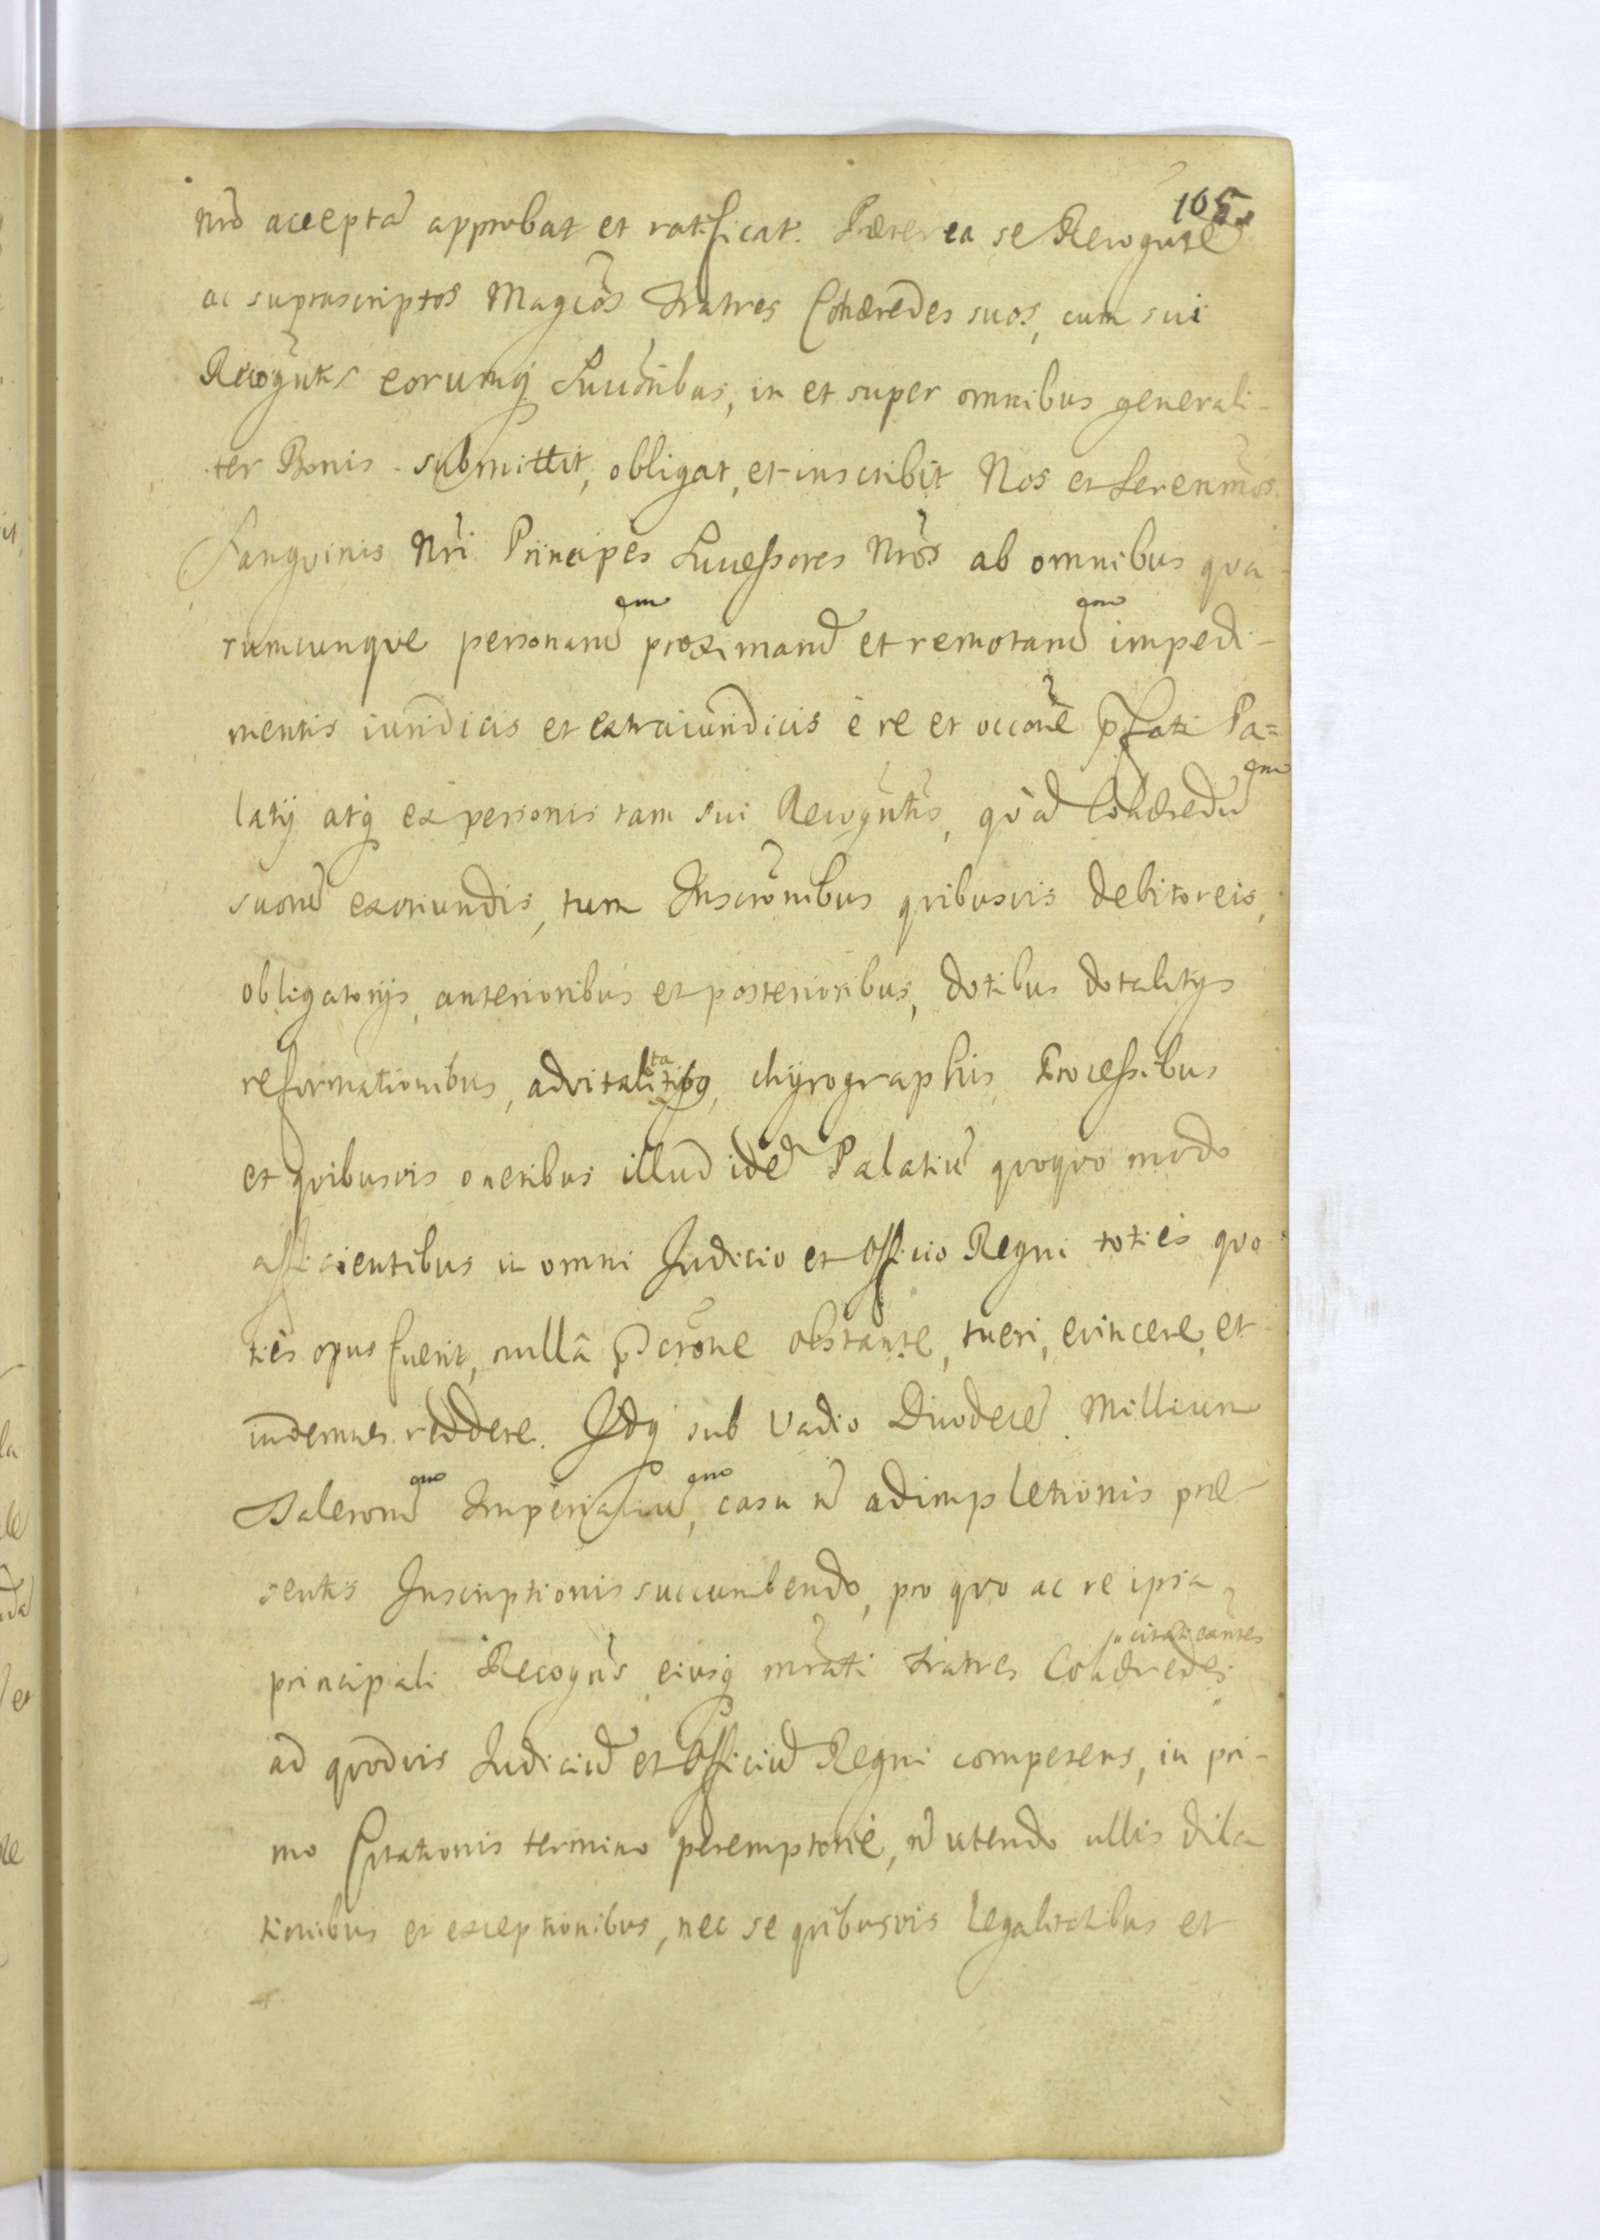 105
nrō acceptā approbat et ratificat. Præterea se Recognte͂
ac suprascriptos Magcos fratres Cohæredes suos, cum sui
Recogntis eorumq̨ Succribus, in et super omnibus generali-
ter Bonis submittit, obligat, et inscribit Nos et Serenmos
Sanguinis Nri Principes Successores Nros ab omnibus qua-
rumcunque personarū proximarū et remotarū impedi-
mentis iuridicis et extraiuridicis è re et occone pfati Pa=
latij atq̨ ex personis tam sui Recogntis, quā Cohæredū
suorū exoriundis, tum Inscronibus quibusvis debitoreis,
obligatorijs, anterioribus et posterioribus, dotibus dotalitijs
reformationibus, advitalitatibq, chyrographis Processibus
et quibusvis oneribus illud idē Palatiū quoquo modo
afficientibus in omni Judicio et Officio Regni toties quo-
ties opus fuerit, nullâ pscrone obstante, tueri, evincere, et
indemnes reddere. Idq̨ sub vadio Duodecē Millium
Talerorū Imperialiū, casu nō adimpletionis præ
sentis Inscriptionis succumbendo, pro quo ac re ipsa
principali Recogns eiusq̨ mrati fratres Cohæredes
citati exntes
ad quodvis Judiciū et Officiū Regni competens, in pri-
mo Citationis termino peremptoriè, nō utendo ullis dila
tionibus et exceptionibus, nec se quibusvis legalitatibus et